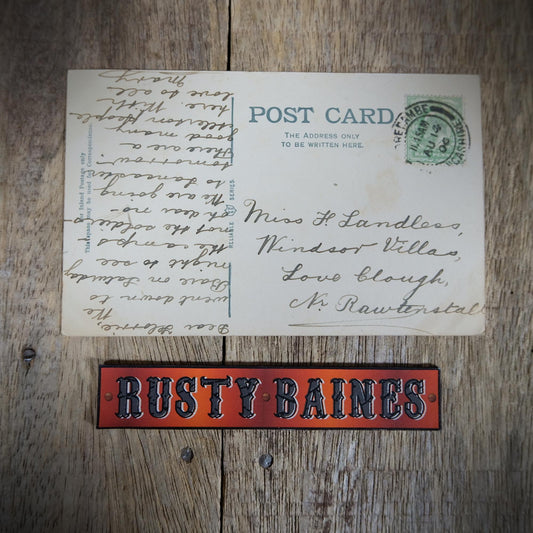 POST CARD
THE ADDRESS ONLY
TO BE WRITTEN HERE.
Miss F. Landless,
Windsor Villas,
Love Clough,
Nr. Rawtenstall
Dear Florrie,
We
went down to
Bare on Saturday
night to see
the camps
not the soldiers
oh dear no.
We are going
to Lancaster
tomorrow.
There are a
good many
people
here. With
love to all
Mary
Inland Postage only
This space, may be used for Correspondence
RELIABLE
SERIES
AU 14
06
RUSTY BAINES